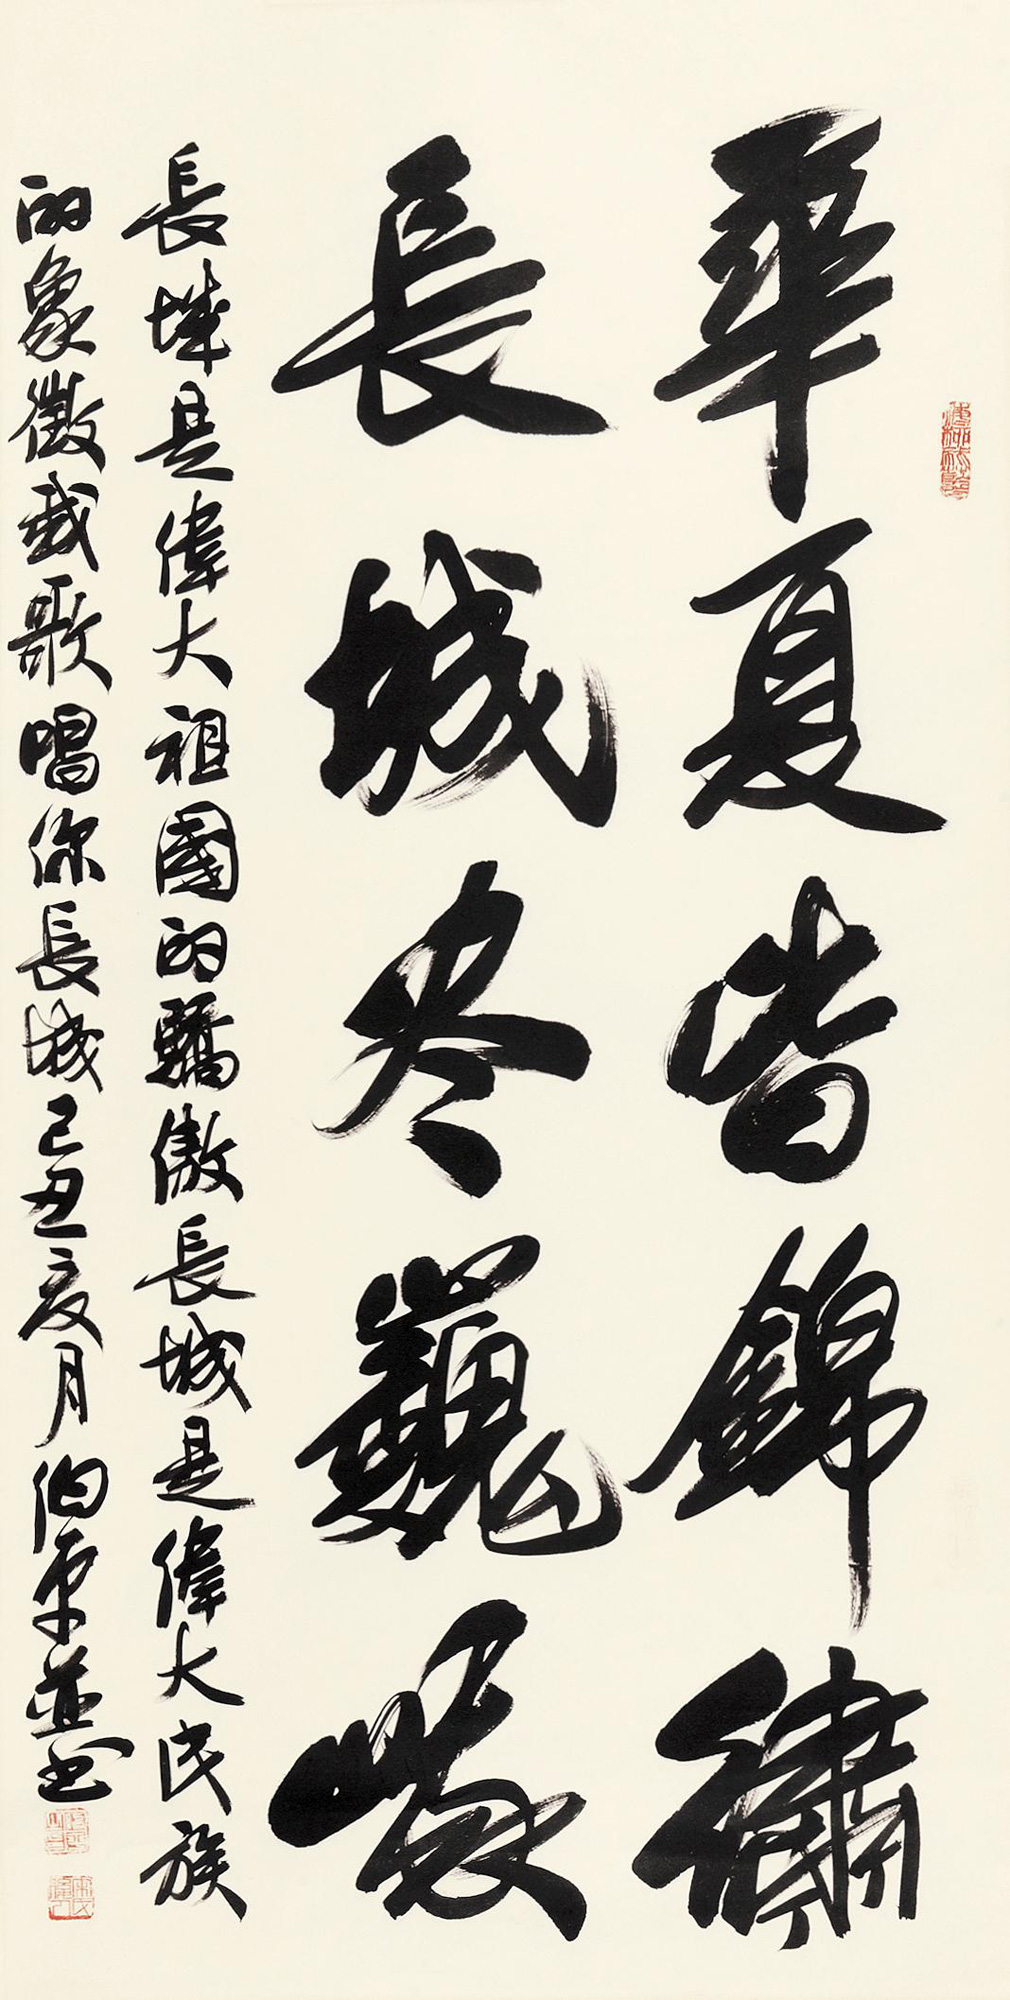 華夏皆錦繡
長城尽巍峨
長城是偉大祖國的驕傲長城是偉大民族
的象徵我歌唱你長城己丑亥月伯平並书